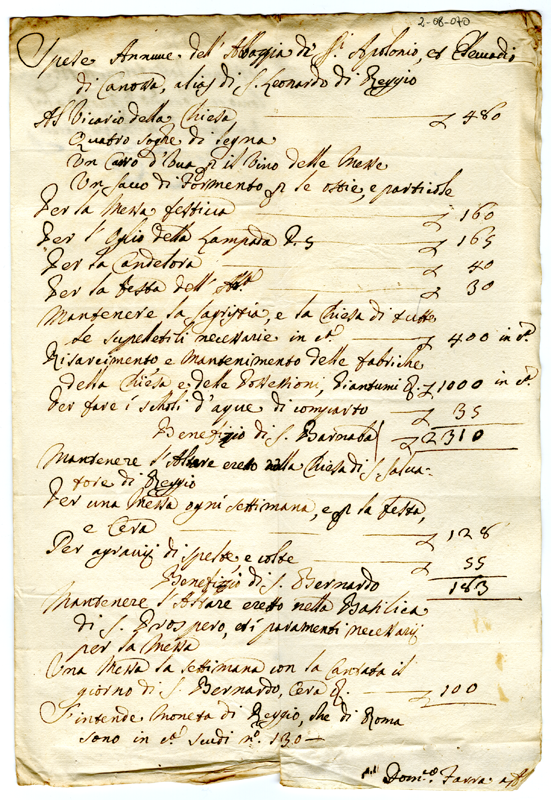 2-08-070
Spese Annue dell'Abbazia di S. Apolonio,
di Canossa, alias di S. Leonardo di Reggio
Al Vicario della Chiesa £ 480
Quatro soghe di legna
Un Carro d'Uua p il Vino delle Messe
Un sacco di Formento p le ostie, e particole
Per la Messa festiua £ 160
Per l'Oglio della Lampada £ 165
Per la Candelora £ 40
Per la festa dell' £ 30
Mantenere la sagristia, e la Chiesa di tutte
le supeletili necessarie in ca. £ 400 in ca.
Risarcimento e Mantenimento delle fabriche
della Chiesa e delle Possessioni, Piantumi £ 1000 in ca.
Per fare i scholi d'aque di comparto £ 35
Benefizio di S. Barnaba £ 2310
Mantenere l'Altare ereto nella Chiesa di S. Salua-
tore di Reggio
Per una Messa ogni settimana, e p la festa,
e Cera £ 128
Per agrauij di spelte e colte £ 55
Benefizio di S. Bernardo 183
Mantenere l'Altare eretto nella Basilica
di S. Prospero, et i paramenti necessarij
per la Messa
Una Messa la settimana con la Cantata il
giorno di S. Bernardo, Cera £ 100
S'intende Moneta di Reggio, che di Roma
sono in ca. scudi no. 130
Domco. Farra